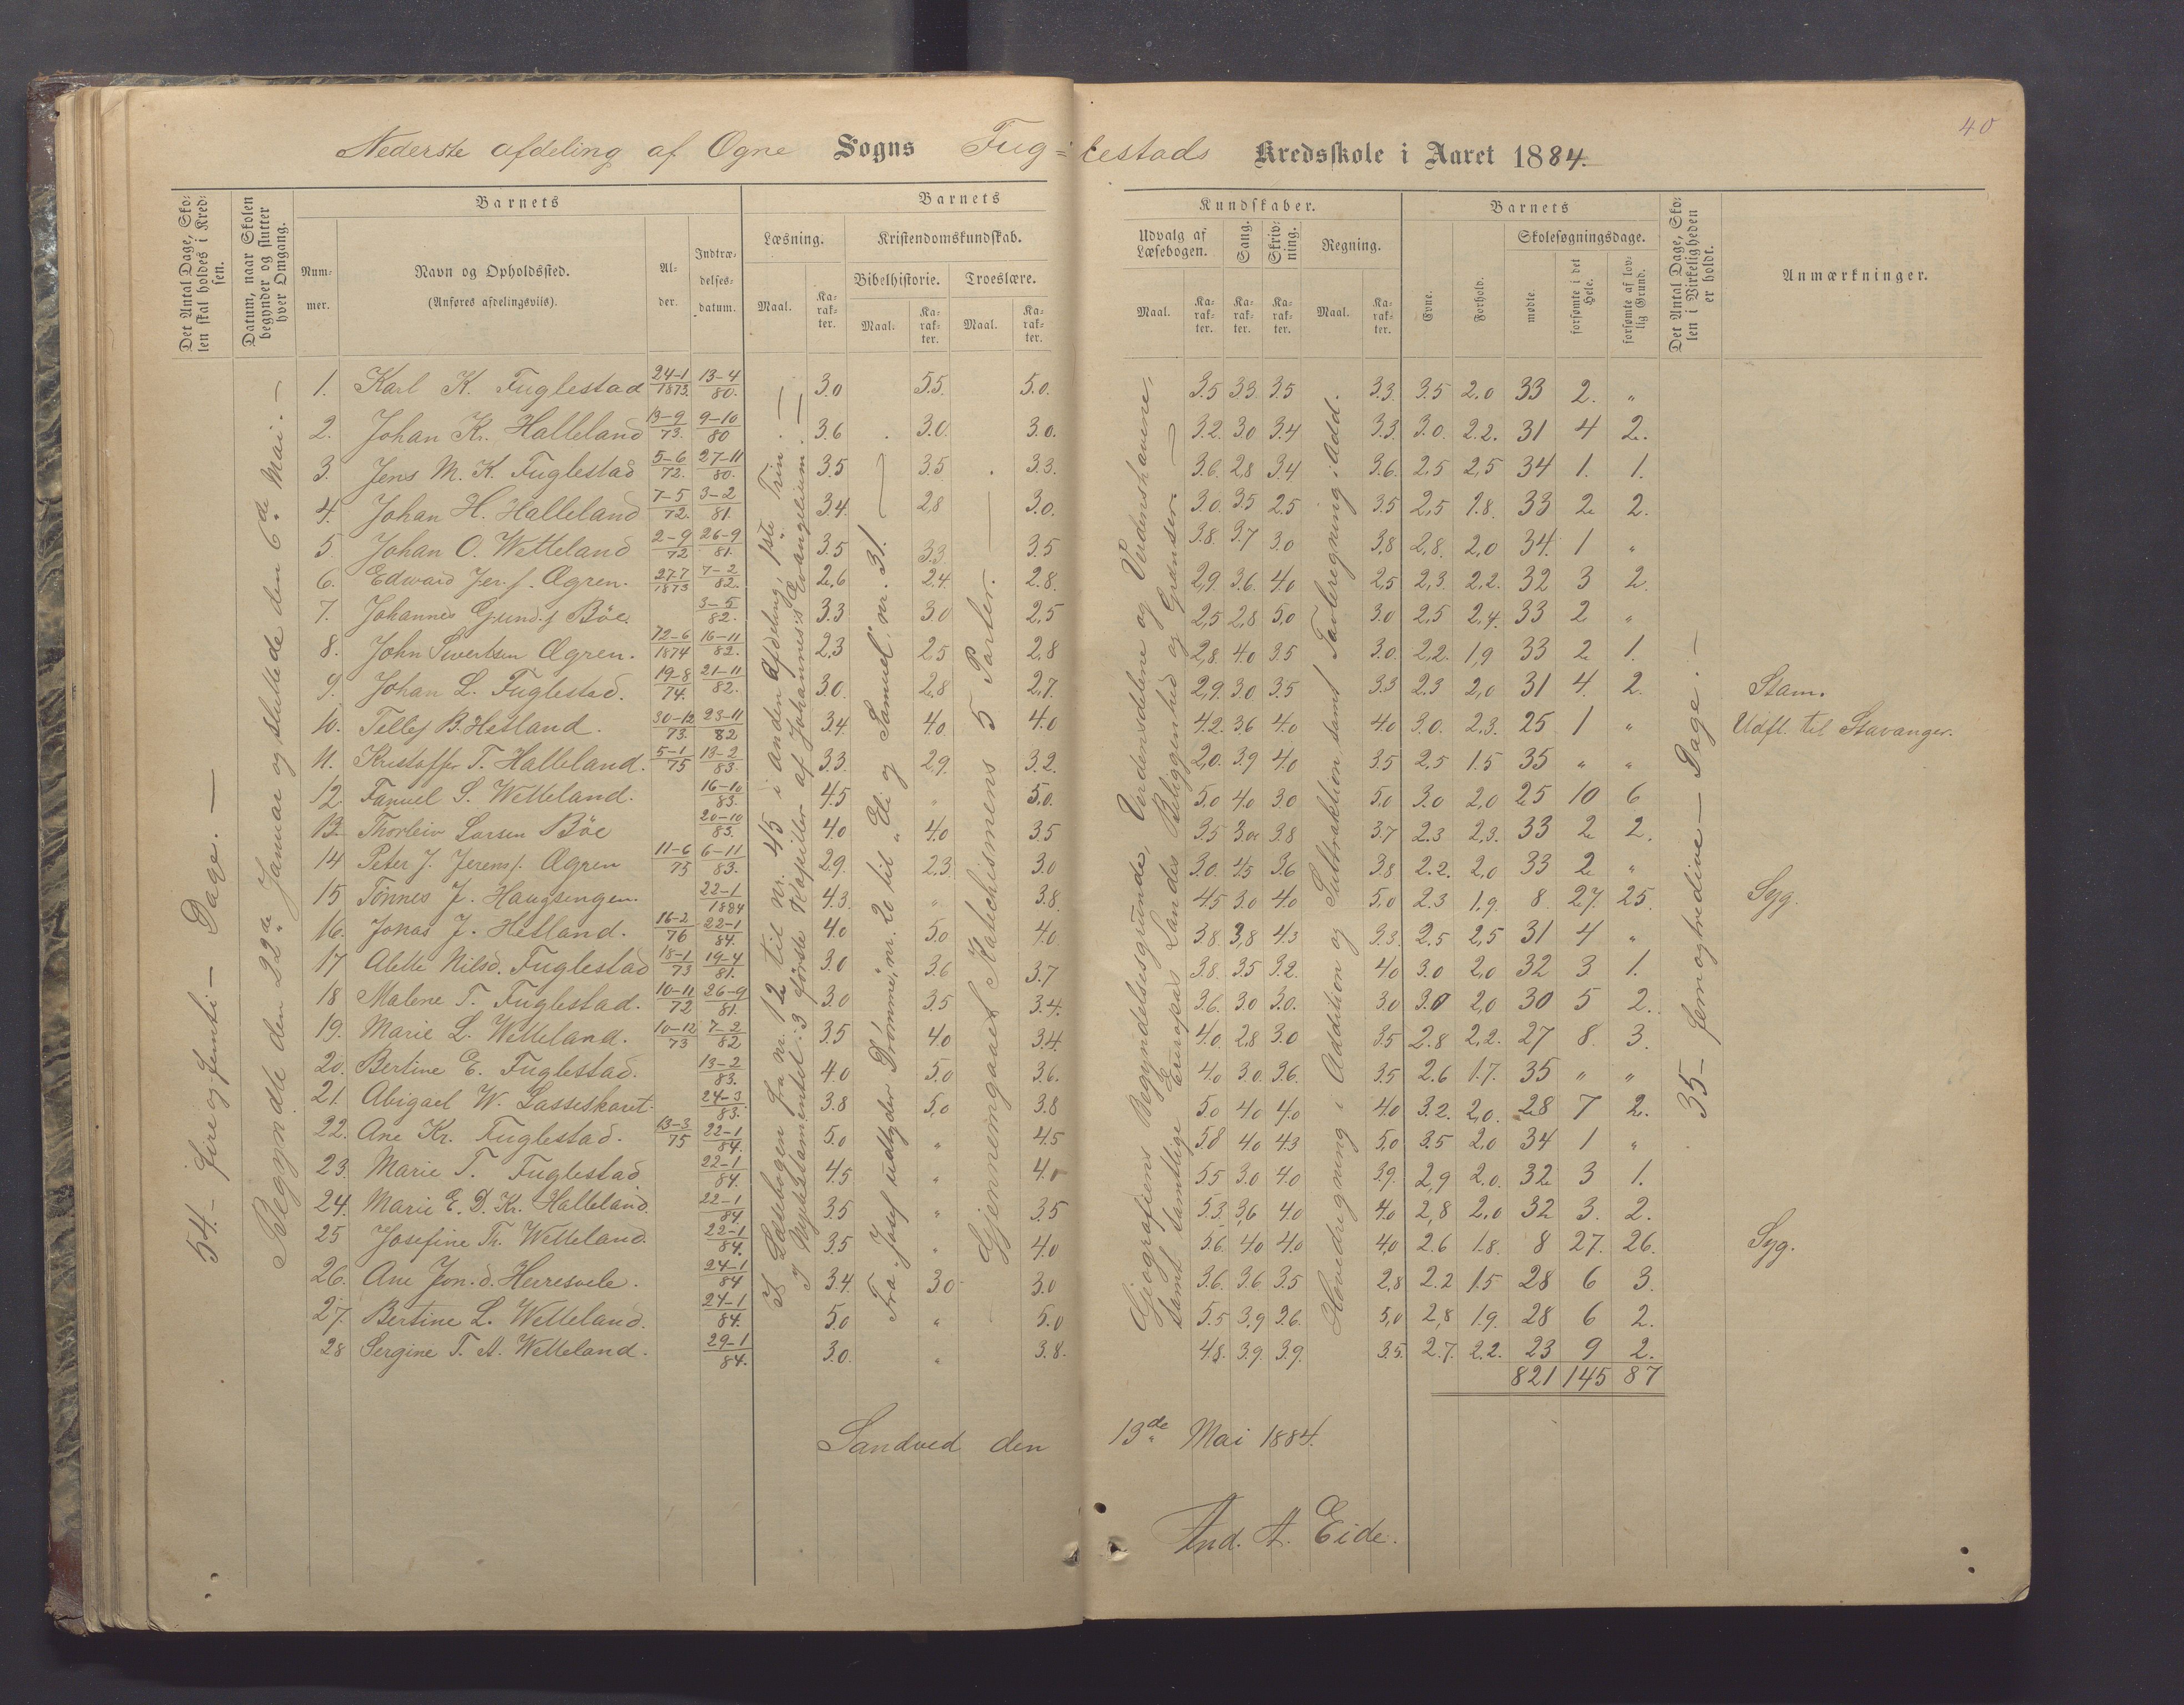 40
Nederste afdeling af Ogne Sogns Fug=lestads Kredsskole i Aaret 1884.
Det Antal Dage, Skolen skal holdes i Kredsen.
Datum, naar Skolen begynder og slutter hver Omgang.
Barnets
Nummer.
Navn og Opholdssted.
(Anføres afdelingsviis).
Alder.
Indtrædelsesdatum.
Barnets Kundskaber.
Læsning.
Maal.
Karakter.
Kristendomskundskab.
Bibelhistorie.
Maal.
Karakter.
Troeslære.
Maal.
Karakter.
Udvalg af Læsebogen.
Maal.
Karakter.
Sang.
Karakter.
Skrivning.
Karakter.
Regning.
Maal.
Karakter.
Barnets
Evne.
Forhold.
Skolesøgningsdage.
mødte.
forsømte i det Hele.
forsømte af lovlig Grund.
Det Antal Dage, Skolen i Virkeligheden er holdt.
Anmærkninger.
54 – fire og femti – Dage. –
Begyndte den 22de Januar og sluttede den 6de Mai. –
I Læsebogen fra nr. 12 til nr. 45 i anden afdeling, 1ste Trin. –
I Nytestamentet: 3 første Kapitler af Johannes's Evangelium. –
Fra "Josef udtyder Drømme", nr. 20 til "Eli og Samuel", nr. 31. –
Gjennemgaaet Katechismens 5 Parter. –
Gjeografiens Begyndelsesgrunde, Verdensdelene og Verdenshavene,
samt samtlige Europas Landes Beliggenhed og Grændser. –
Hovedregning i Addition og Subtraktion samt Tavleregning i Add.
35 – fem og tredive – Dage. –
1. Karl K. Fuglestad 24–1/1873. 13–4/80. 3.0 5.5. 5.0. 3.5 3.3. 3.5 3.3. 3.5 2.0 33 2. "
2. Johan Kr. Halleland 13–9/73. 9–10/80 3.6 3.0. 3.0. 3.2. 3.0 3.4 3.3. 3.0. 2.2. 31 4 2.
3. Jens M. K. Fuglestad 5–6/72. 27–11/80. 3.5 3.5 3.3. 3.6. 2,8 3.4 3.6. 2,5 2,5 34 1. 1.
4. Johan H. Halleland 7–5/72. 3–2/81. 3.4. 2,8 3.0. 3.0. 3.5 2.5 3.5 2,5 1.8. 33 2 2.
5. Johan O. Wetteland 2–9/72 26–9/81. 3.5 3.3. 3.5 3.8. 3.7 3.0 3,8 2,8. 2,0 34. 1 "
6. Edward Jer. s. Ægren. 27–7/1873 7–2/82. 2,6 2.4. 2.8. 2,9 3.6. 4.0 2,5 2,3 2,2. 32 3 2.
7. Johannes Gund. s Böe. 3–5/82. 3.3 3.0 2,5 2,5 2,8 5,0 3.0 2,5 2,4. 33 2 "
8. John Sivertsen Ægren. 12–6/1874 16–11/82. 2,3 2,5 2,8 2,8. 4.0 3.5 3.0. 2,2. 1,9 33 2 1.
9. Johan L. Fuglestad. 19–8/74. 21–11/82. 3.0. 2,8 2,7. 2,9. 3.0 3.5 3.3 2.3 2,0 31 4. 2. Stam.
10. Tellef B. Hetland. 30–12/73. 23–11/82 3.4. 4.0. 4.0 4.2. 3.6 4.0 4.0 3.0. 2,3. 25 1 " Udfl. til Stavanger.
11. Kristoffer T. Halleland. 5–1/75 13–2/83. 3.3. 2,9. 3.2. 2,0. 3.9 4,0 3.5 2,5 1.5 35 " "
12. Fanuel S. Wetteland. 16–10/83. 4.5 " 5.0. 5.0 4.0 3.0 5,0 3.0 2,0 25 10 6
13. Thorleiv Larsen Böe 20–10/83. 4.0 4.0 3.5 3.5 3.0 3.8 3.7 2.3 2,3. 33 2 2.
14 Peter J. Jerems. Ægren 11–6/75 6–11/83. 2.9. 2.3. 3.0 3.0. 4.5 3.6 3.8 2.2. 2,0 33 2 "
15 Tönnes J. Haugsengen. 22–1/1884 4.3. " 3.8. 4.5 3.0 4.0 5,0 2.3 1.9 8. 27. 25. Syg.
16. Jonas J. Hetland. 16–2/76 22–1/84. 4.0 5.0 4.0 3.8. 3,8 4.3 3.3. 2.5 2,5 31 4 "
17 Alette Nilsd. Fuglestad 18–1/73 19–4/81. 3.0 3.6 3.7 3.8. 3.5 3.2. 4.0 3.0 2,0 32 3 1.
18 Malene T. Fuglestad. 10–11/72 26–9/81. 3.0 3.5 3.4. 3.6. 3.0 3.0. 3.0 3.0 2,0 30 5 2.
19. Marie L. Wetteland. 10–12/73 7–2/82 3.5 4.0 3.4. 4.0. 2,8 3.0 3.5 2.8 2,2. 27 8. 3.
20. Bertine E. Fuglestad. 13–2/83. 4.0 5.0 3.6. 4.0 3.0. 3.6. 3.5 2.6 1.7. 35 " "
21. Abigael W. Lasseskaret. 24–3/83. 3.8 5,0 3.8 5.0 4.0 4.0 4.0 3.2. 2,0. 28 7 2.
22. Ane Kr. Fuglestad. 13–3/75 22–1/84. 5.0 " 4.5 5.8 4.0 4.3 5,0 3.5 2.0 34 1 "
23. Marie T. Fuglestad 22–1/84. 4.5 " 4.0 5.5 3.0 4.0 3.9. 2,9 2.0. 32 3 1.
24. Marie E. D. Kr. Halleland. 22–1/84. 3.5 " 3.5 5.3. 3,6 4.0 4.0 2,8 2,0 32 3. 2.
25 Josefine Th. Wetteland. 22–1/84. 3.5 " 4.0 3.6. 4.0 4.0. 4,0 2.6 1.8. 8 27. 26. Syg.
26. Ane Jon. d. Herresvele. 24–1/84 3.4. 3.0 3.0 3.6. 3.6 3.5 2,8 2.2 1.5 28 6 3.
27. Bertine L. Wetteland. 24–1/84. 5.0 " 5.0 5.5 3.9 3.6. 5,0 2,8 1.9. 28 6 2.
28 Sergine T. A. Wetteland. 29–1/84. 3.0. " 3.8. 4.8. 3.9. 3.9. 3.5. 2.7. 2.2. 23 9 2.
821 145 87
Sandved den 13de Mai 1884.
And. A. Eide.